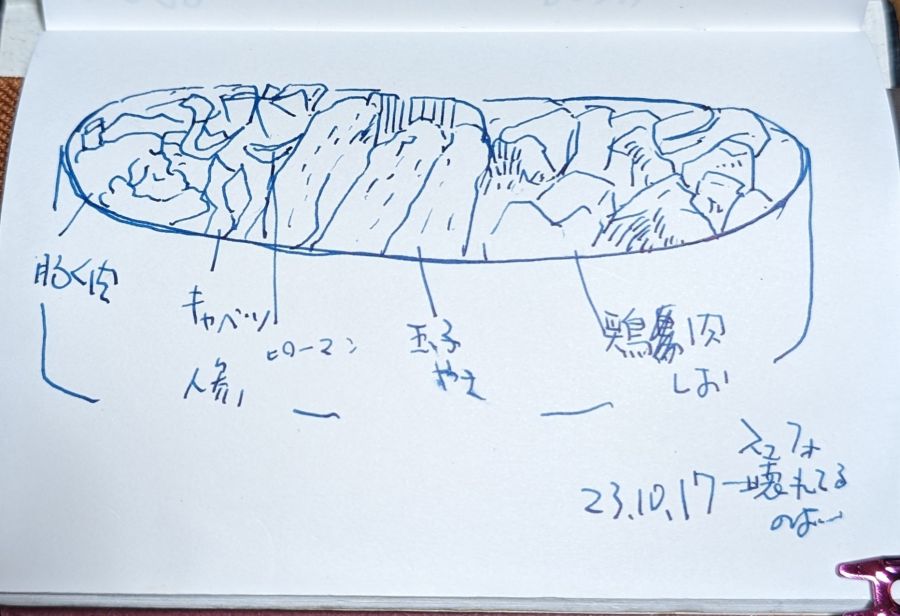 豚く肉
キャベツ
人参
ピーマン
玉子
やき
鶏肉
しお
23.10.17
壊れてる
のは…